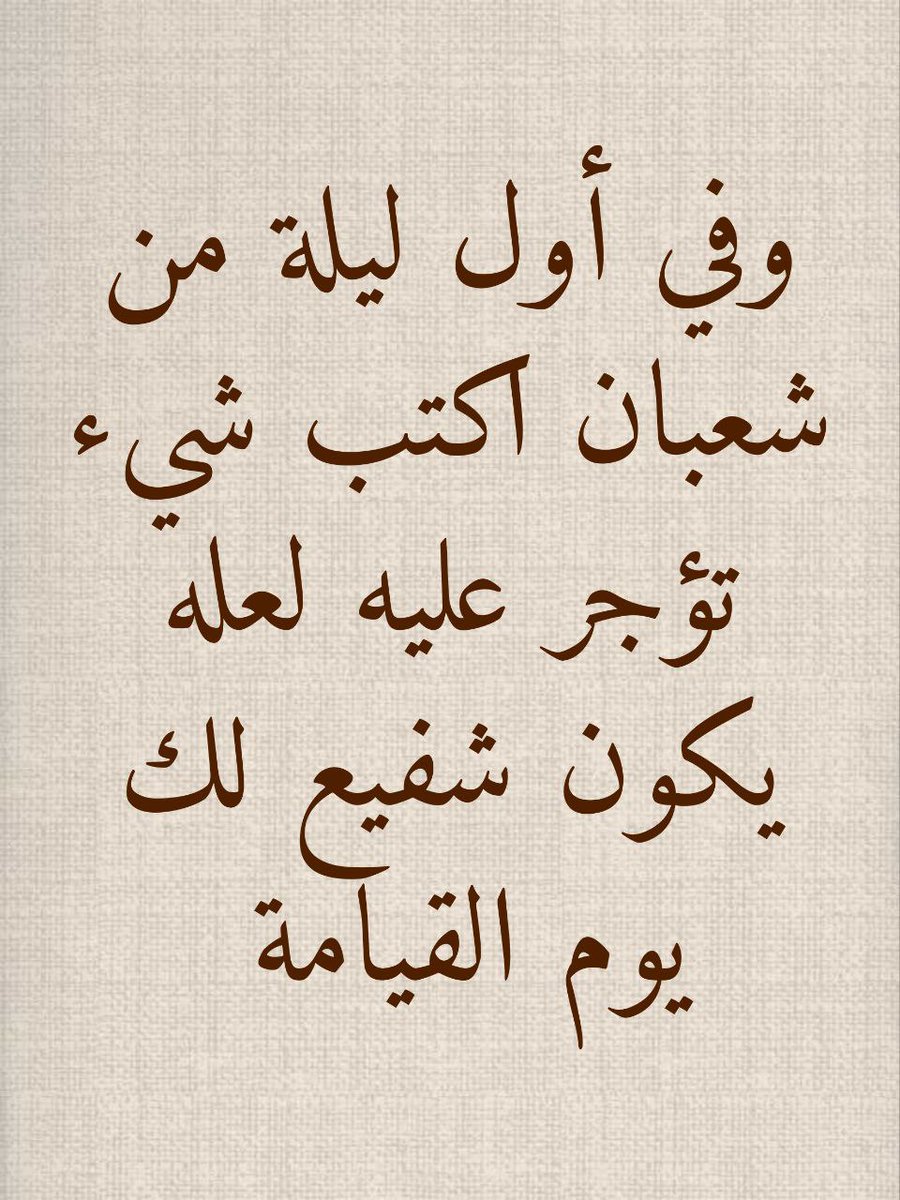 وفي أول ليلة من
شعبان اكتب شيء
تؤجر عليه لعله
يكون شفيع لك
يوم القيامة